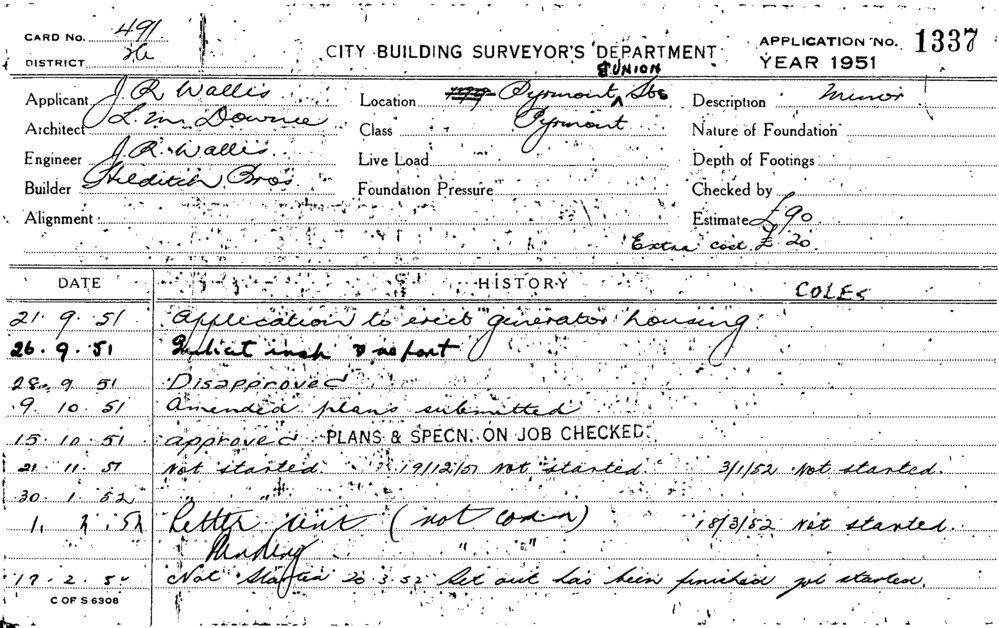 CARD No. 491
DISTRICT 26
CITY BUILDING SURVEYOR'S DEPARTMENT
APPLICATION No. 1337
YEAR 1951
Applicant J R Wallis
Architect L. M Downie
Engineer J. R. Wallis
Builder Hilditch Bros
Alignment
Location Pyrmont & UNION Sts
Class Pyrmont
Live Load
Foundation Pressure
Description Minor
Nature of Foundation
Depth of Footings
Checked by
Estimate £90
Extra cost £ 20.
DATE HISTORY COLES
21. 9. 51 Application to erect generator housing
26. 9. 51 insp & report
28. 9 51 Disapproved
9. 10. 51 Amended plans submitted
15. 10. 51 approved PLANS & SPECN. ON JOB CHECKED
21. 11. 51 Not started. 19/12/51 Not started. 3/1/52 Not started.
30. 1. 52 " "
1. 2. 52 Letter sent (not com n) 18/3/52 Not started.
Pending " "
17. 2. 52 Not Started 20 3. 52 Set out has been finished job started.
C OF S 6308